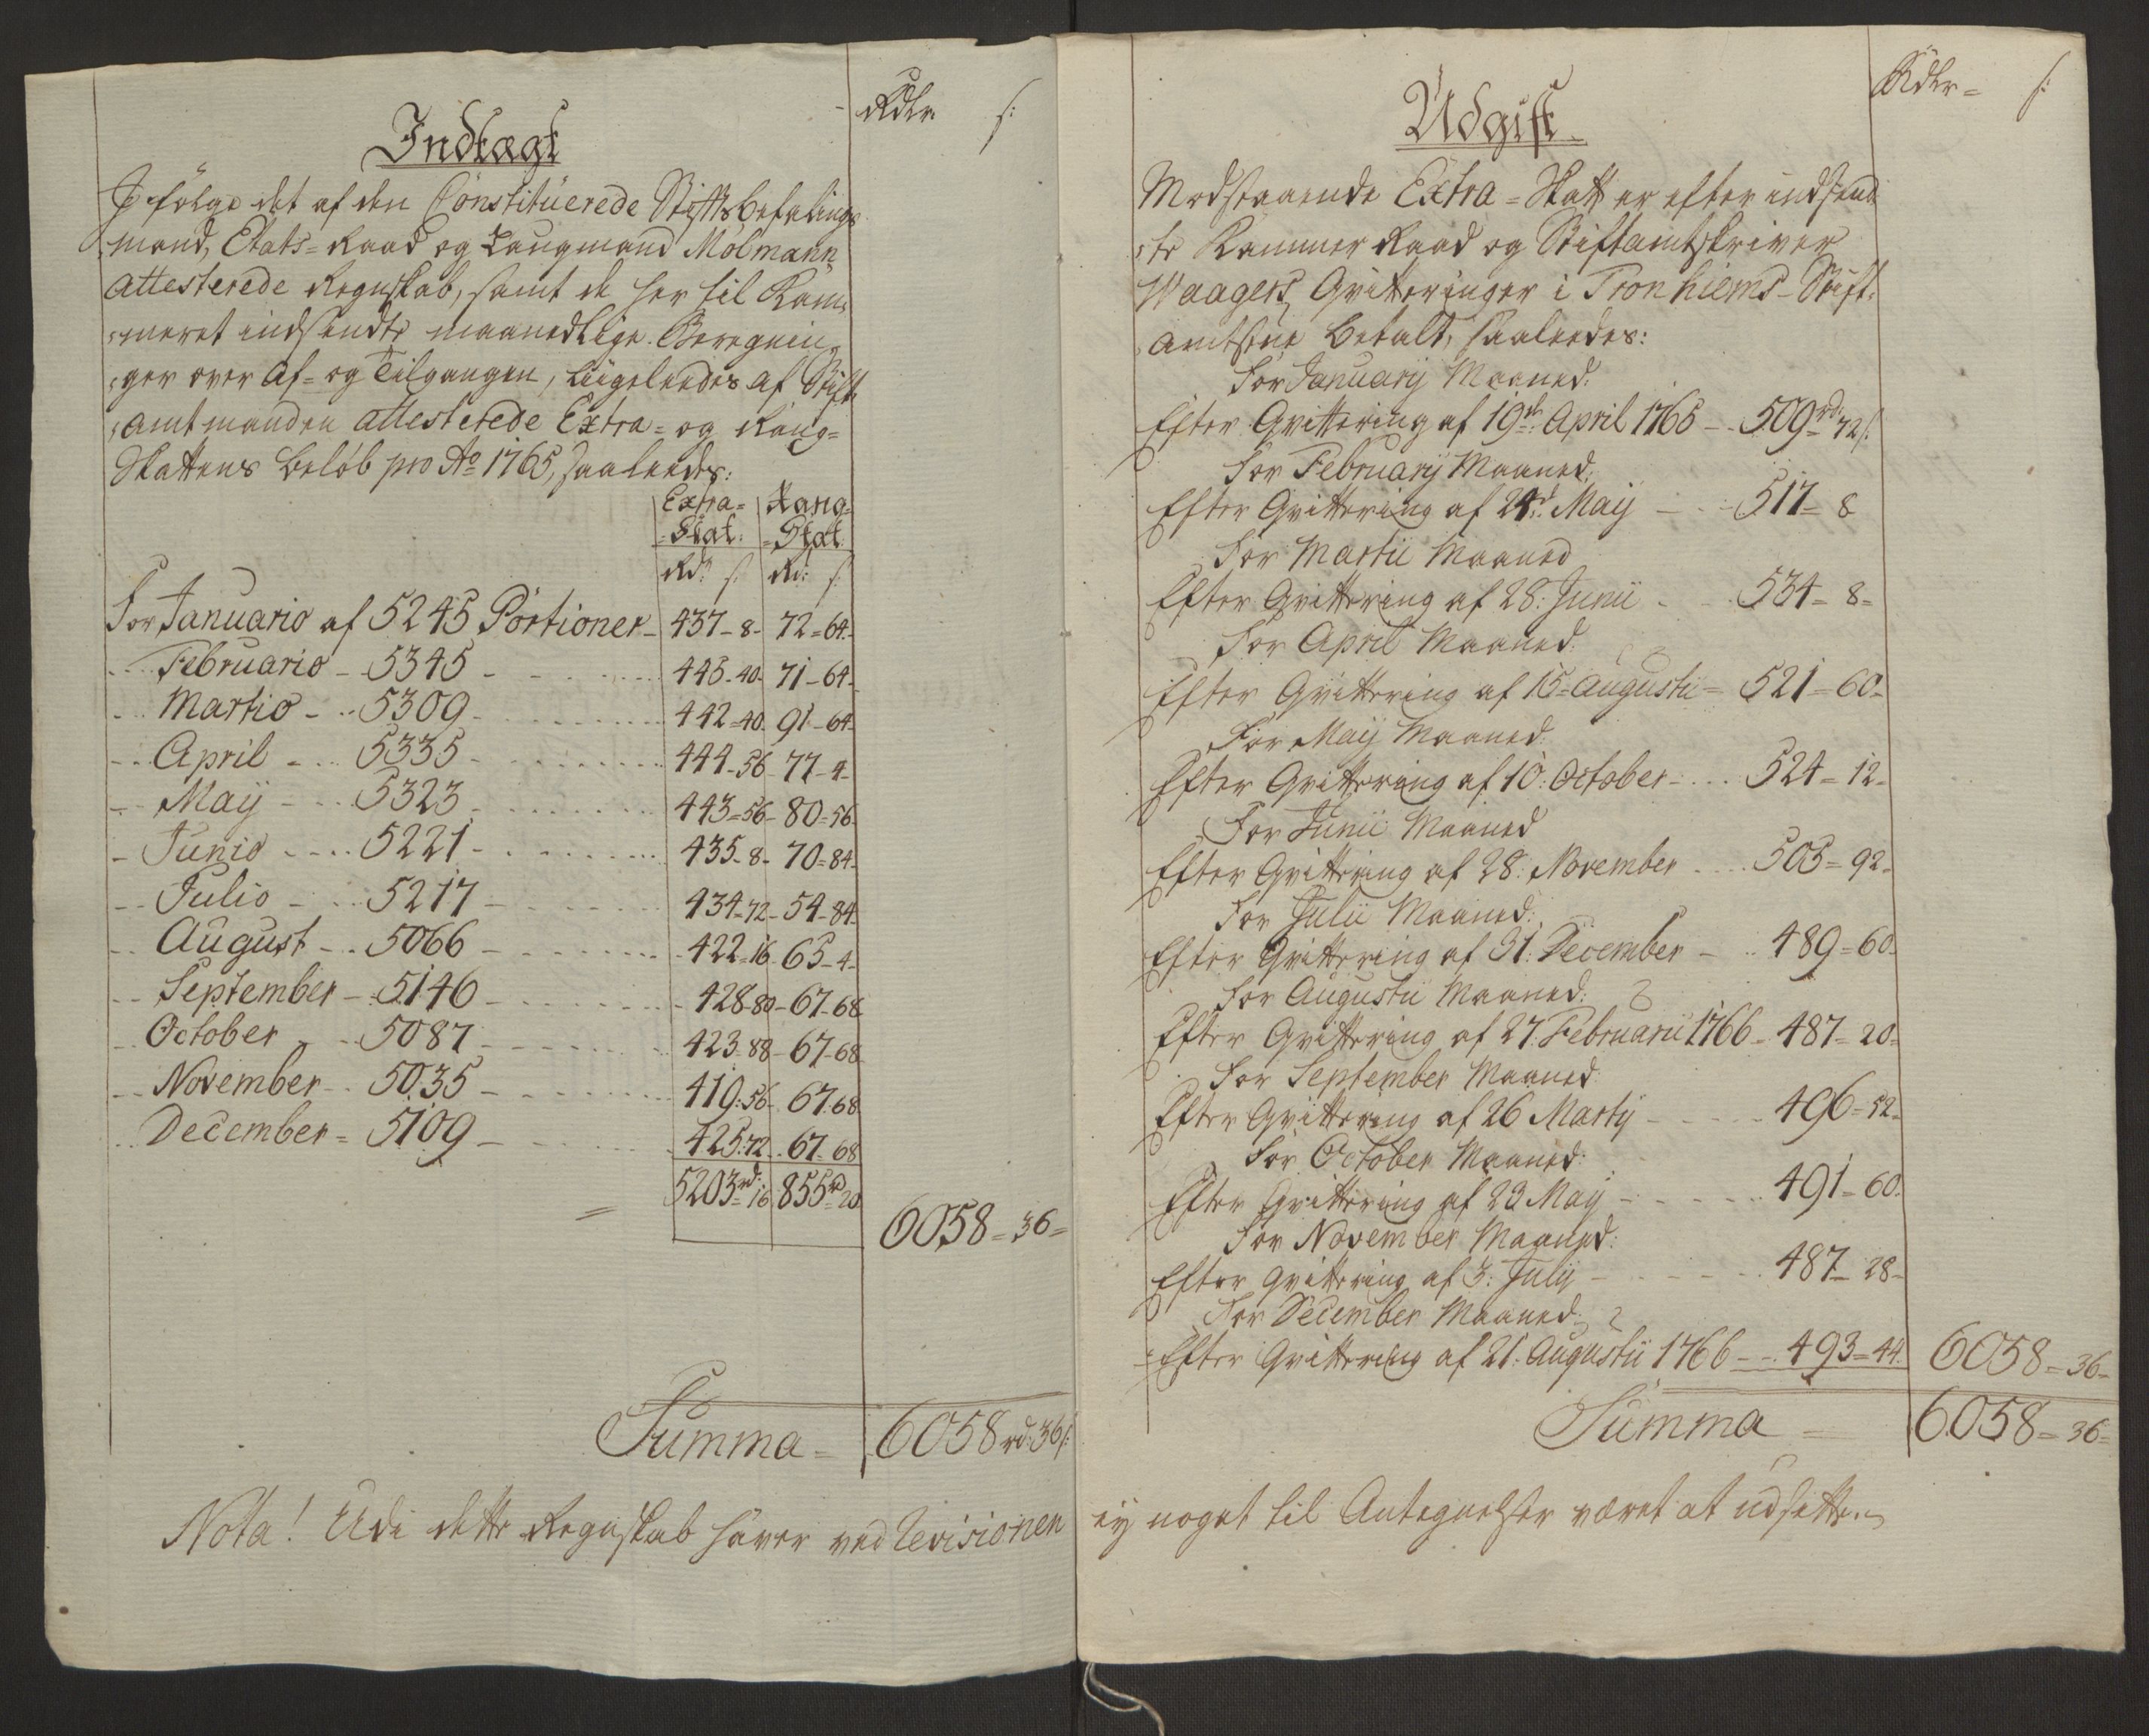 Rdlr. s:
Indtægt
I følge det af den Constituerede Stiftsbefalings
mand, Etats=Raad og Laugmand Mølmann
attesterede Regnskab, samt de her til Kam¬
meret indsendte maanedlige Beregnin
ger over Af= og Tilgangen, liigeleedes af Stift
amtmanden attesterede Extra= og Rang=
Skattens Beløb pro Ao 1765, saaleedes:
Extra= Rang=
=Skat. =Skat.
Rd: s: Rd: s:
For Januario af 5245 Portioner - 437 - 8 - 72 = 64.
- - Februario - 5345 - 445 - 40 - 71 - 64.
- - Martio - - 5309 - 442 = 40. 91 - 64.
- - April - - 5335 - 444 - 56 - 77 - 4 -
- - Maij - - 5323 - 443 = 56 - 80 = 56.
- Junio - - - 5221 - 435 - 8 - 70 = 84.
- - Julio - - - 5217 - 434 - 72 - 54 - 84.
- - August - - 5066 - 422 - 16 - 65 - 4 -
- - September - 5146 - 428 - 80 - 67 - 68.
- - October - - 5087 - 423 - 88 - 67 - 68.
- - November - - 5035 - 419: 56 - 67. 68.
- - December = 5109 - 425: 72 - 67. 68
= 5203 rd: 16 855 rd 20.
6058 = 36 =
Summa = 6058 rd: 36 s:
Nota! Udi dette Regnskab haver ved Revisionen
Rdlr = s:
Udgift
Modstaaende Extra = Skatt er efter indsend
te Kammer Raad og Stiftamtskriver
Waagers Qvitteringer i Tronhiems - Stift
amtstue betalt, saaleedes:
For Januarij Maaned:
Efter Qvittering af 19de April 1765 - - 509 rd: 72 s:
For Februarij Maaned:
Efter Qvittering af 24de Maij - - - 517 = 8
For Martii Maaned
Efter Qvittering af 28: Junii - - 534 = 8 =
For April Maaned:
Efter Qvittering af 15 = Augustii = 521 = 60 -
For Maij Maaned:
Efter Qvittering af 10: October - - - 524 = 12 -
For Junii Maaned
Efter Qvittering af 28: November - - - 505 = 92 -
For Julii Maaned:
Efter Qvittering af 31: December - - - 489 = 60 -
For Augustii Maaned:
Efter Qvittering af 27: Februarii 1766 - 487 = 20 =
For September Maaned:
Efter Qvittering af 26 Martij - - - - 496 = 52 =
For October Maaned:
Efter Qvittering af 23 Maij - - - - 491 = 60 -
For November Maaned:
Efter Qvittering af 3: Julij - - - - 487 = 28 -
For December Maaned:
Efter Qvittering af 21: Augustii 1766 - - 493 = 44. 6058 = 36 -
Summa = 6058 = 36 =
eij noget til Antegnelser været at udsette.